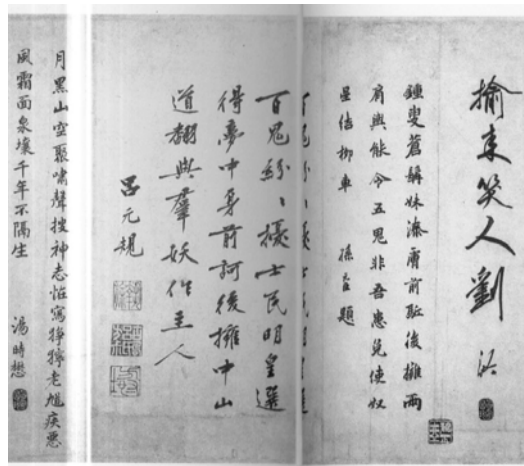 揄来笑人劉
鍾叟蒼髯妹漆膚前駈後擁兩
肩輿能令五鬼非吾患免使奴
星結柳車 孫 題
百鬼紛〻擾士民明皇選
得夢中身前訶後擁中山
道翻與羣妖作主人
呂元規
月黑山空聚嘯聲搜神志怪寫猙獰老馗疾惡
風霜面泉壤千年不隔生 湯時懋